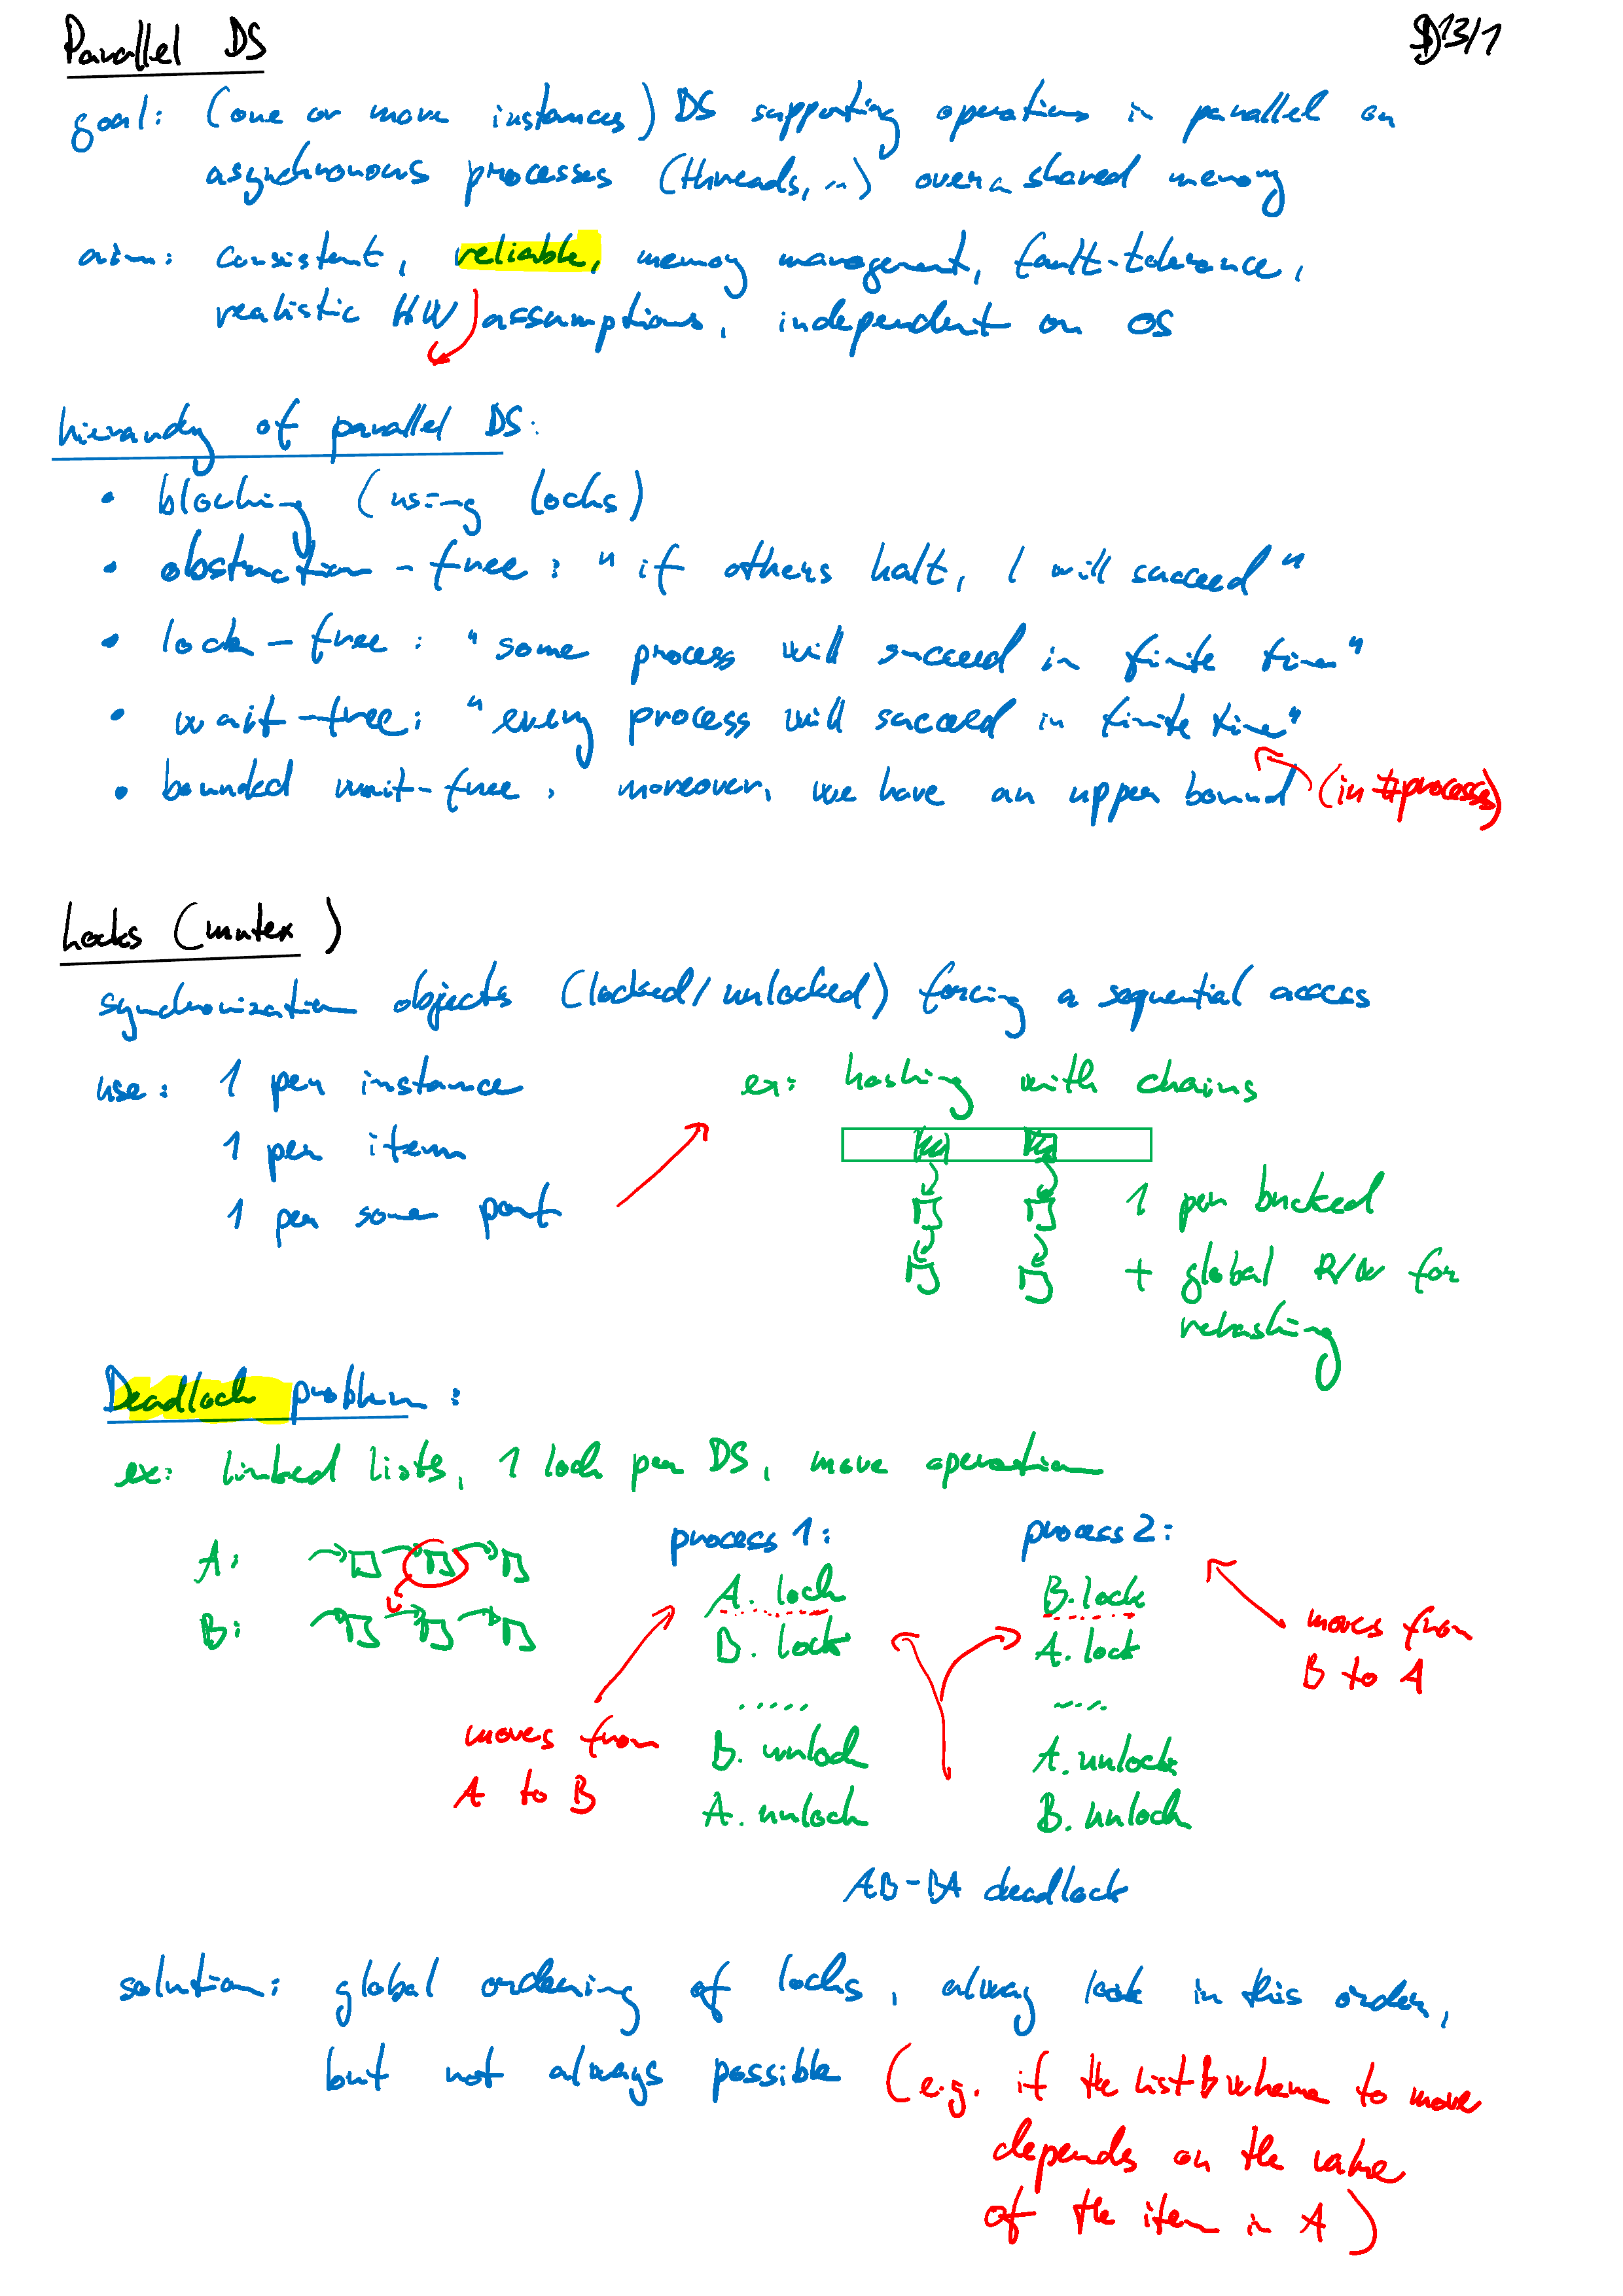 Parallel DS
13/1
goal: (one or more instances) DS supporting operations in parallel on
asynchronous processes (threads, ...) over a shared memory
aim: consistent, reliable, memory management, fault-tolerance,
realistic HW assumptions, independent on OS
hierarchy of parallel DS:
• blocking (using locks)
• obstruction-free: "if others halt, I will succeed"
• lock-free: "some process will succeed in finite time"
• wait-free: "every process will succeed in finite time"
• bounded wait-free: moreover, we have an upper bound (in #process)
Locks (mutex)
synchronization objects (locked/unlocked) forcing a sequential access
use: 1 per instance
1 per item
1 per some part
ex: hashing with chains
1 per bucked
+ global R/W for
rehashing
Deadlock problem:
ex: linked lists, 1 lock per DS, move operation
A:
B:
moves from
A to B
process 1:
A. lock
B. lock
.....
B. unlock
A. unlock
process 2:
B. lock
A. lock
....
A. unlock
B. unlock
moves from
B to A
AB-BA deadlock
solution: global ordering of locks, alway lock in this order,
but not always possible (e.g. if the list B where to move
depends on the value
of the item in A)